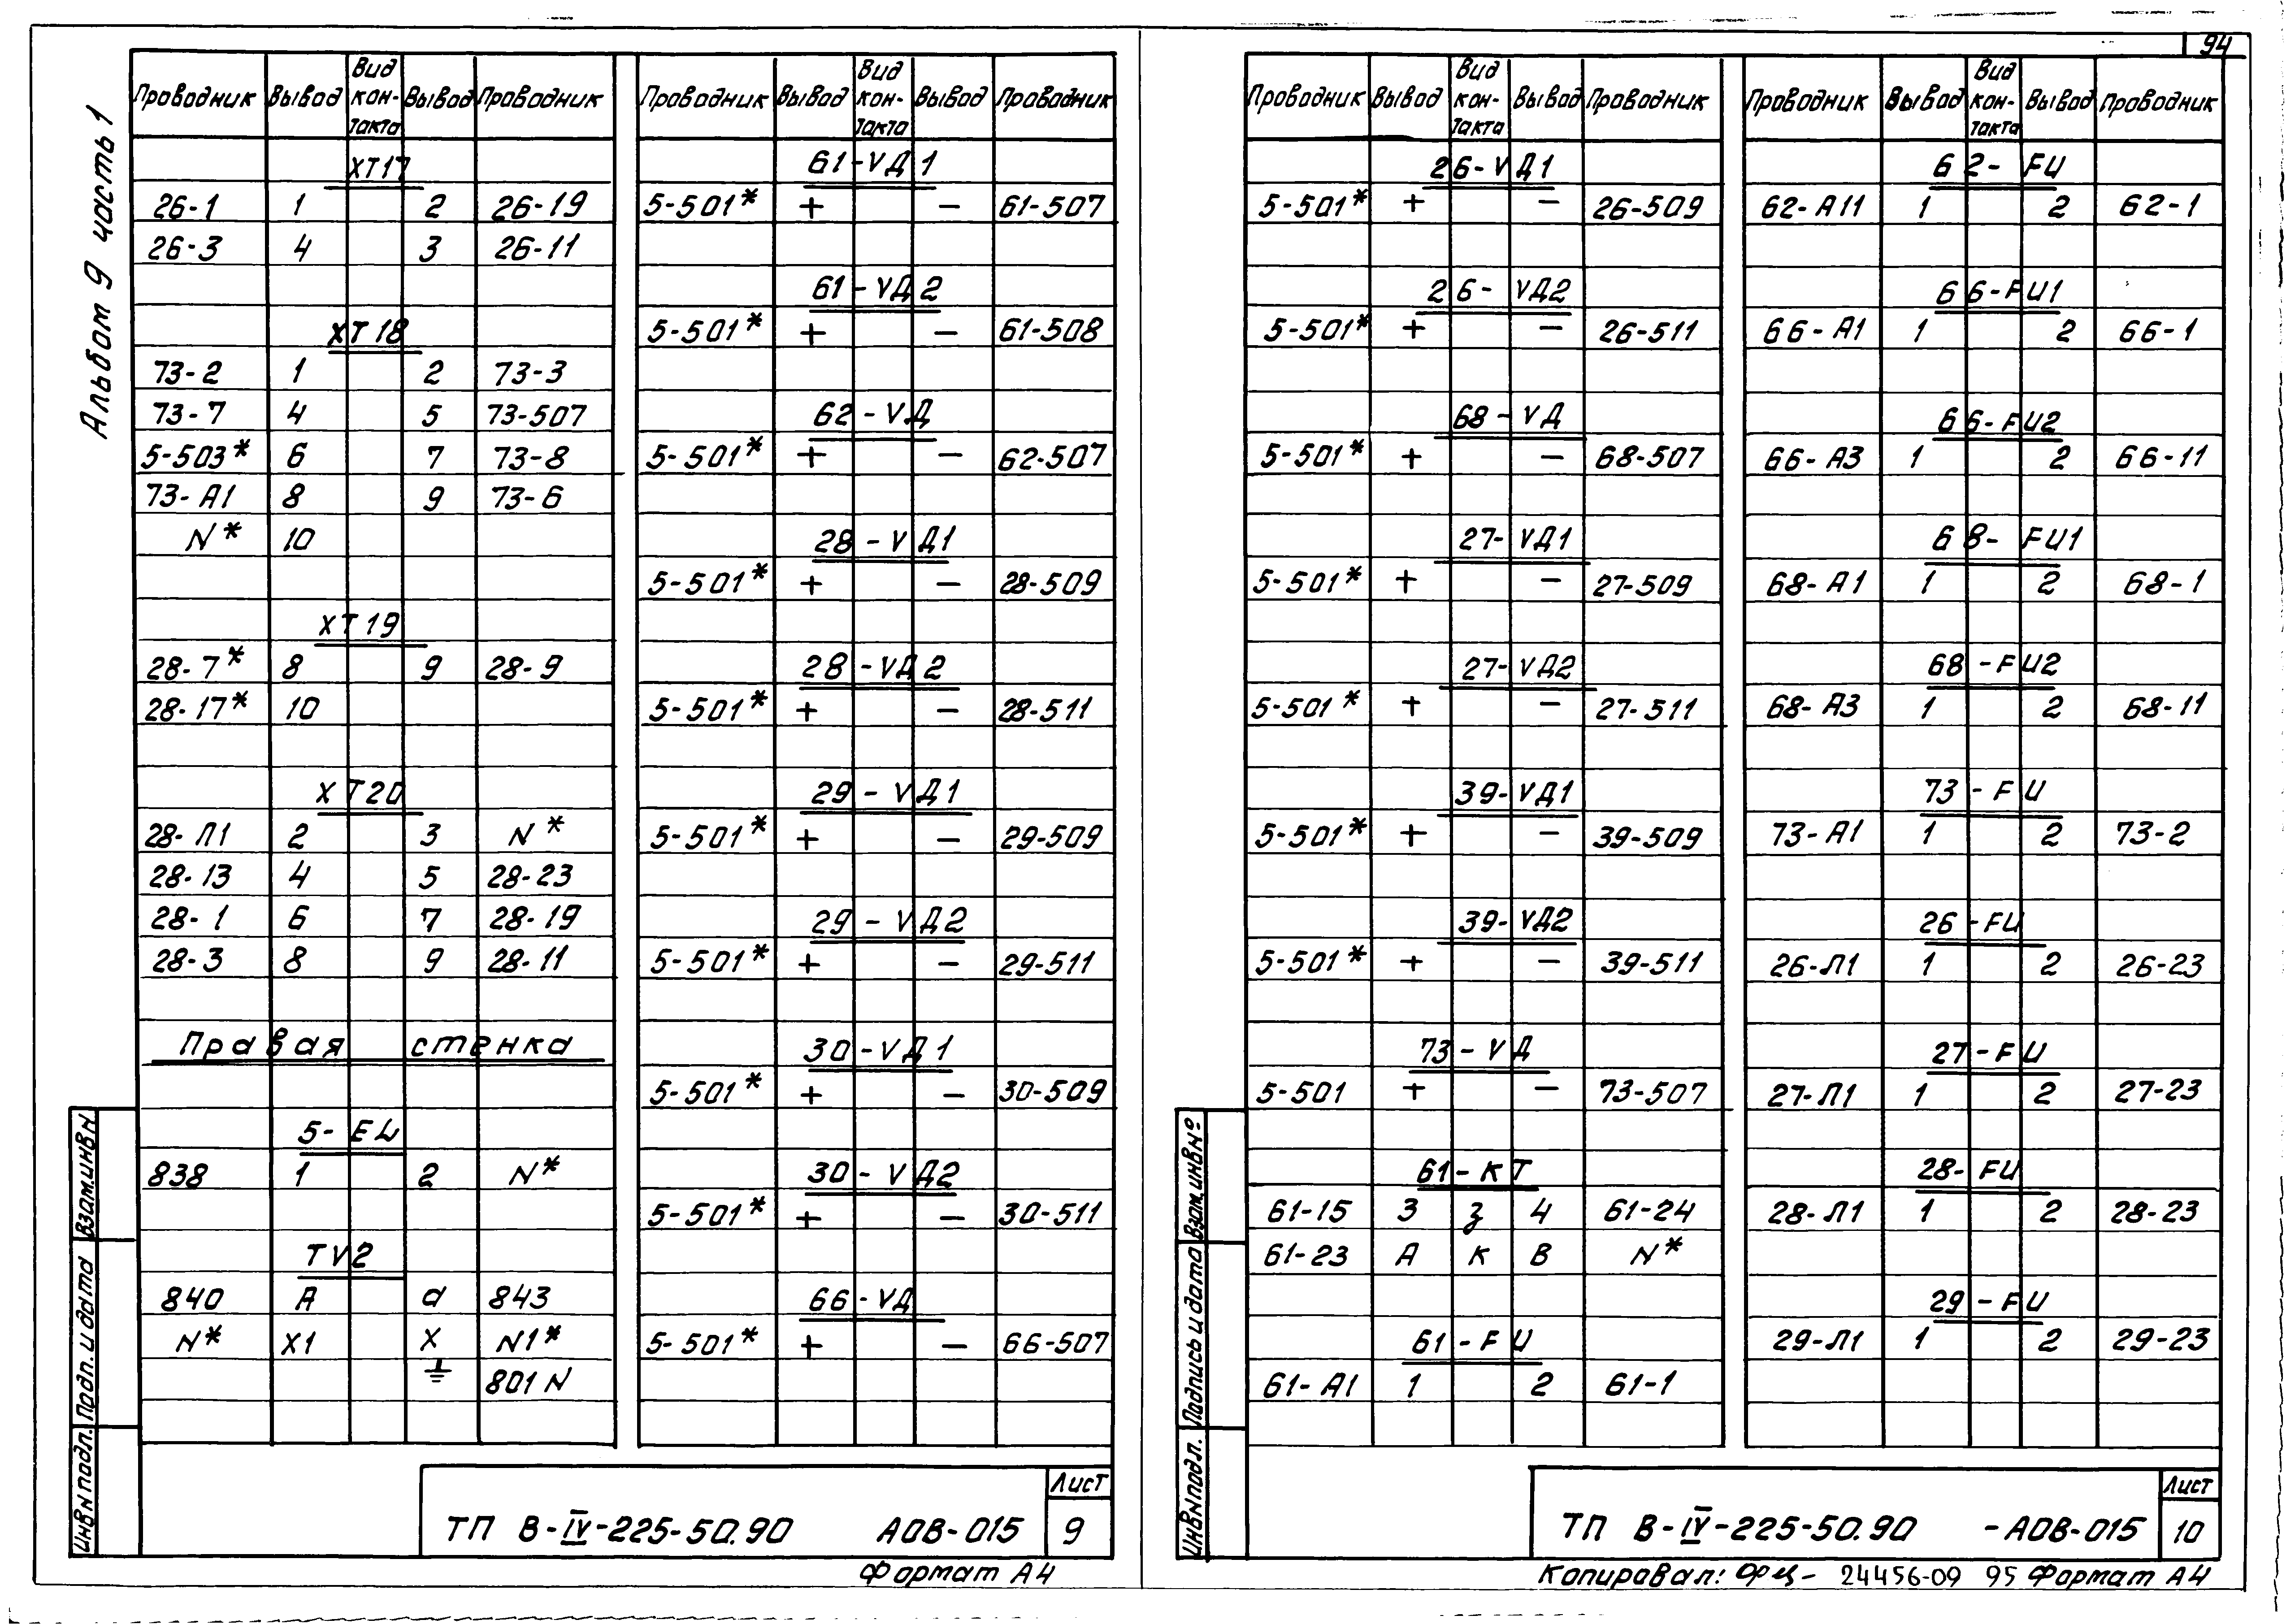 94
Альбом 9 часть 1
Проводник Вывод Вид кон-такта Вывод Проводник
XT17
26-1 1 2 26-19
26-3 4 3 26-11
XT18
73-2 1 2 73-3
73-7 4 5 73-507
5-503* 6 7 73-8
73-А1 8 9 73-6
N* 10
XT19
28-7* 8 9 28-9
28-17* 10
XT20
28-Л1 2 3 N*
28-13 4 5 28-23
28-1 6 7 28-19
28-3 8 9 28-11
Правая стенка
5-EL
838 1 2 N*
TV2
840 А а 843
N* X1 X N1*
⏚ 801N
Проводник Вывод Вид кон-такта Вывод Проводник
61-VД1
5-501* + − 61-507
61-VД2
5-501* + − 61-508
62-VД
5-501* + − 62-507
28-VД1
5-501* + − 28-509
28-VД2
5-501* + − 28-511
29-VД1
5-501* + − 29-509
29-VД2
5-501* + − 29-511
30-VД1
5-501* + − 30-509
30-VД2
5-501* + − 30-511
66-VД
5-501* + − 66-507
Взам.инвN
Подп. и дата
ИнвNподл.
ТП В-IV-225-50.90 АОВ-015
Лист
9
Формат А4
Проводник Вывод Вид кон-такта Вывод Проводник
26-VД1
5-501* + − 26-509
26-VД2
5-501* + − 26-511
68-VД
5-501* + − 68-507
27-VД1
5-501* + − 27-509
27-VД2
5-501* + − 27-511
39-VД1
5-501* + − 39-509
39-VД2
5-501* + − 39-511
73-VД
5-501 + − 73-507
61-КТ
61-15 3 з 4 61-24
61-23 А к В N*
61-FU
61-А1 1 2 61-1
Проводник Вывод Вид кон-такта Вывод Проводник
62-FU
62-А11 1 2 62-1
66-FU1
66-А1 1 2 66-1
66-FU2
66-А3 1 2 66-11
68-FU1
68-А1 1 2 68-1
68-FU2
68-А3 1 2 68-11
73-FU
73-А1 1 2 73-2
26-FU
26-Л1 1 2 26-23
27-FU
27-Л1 1 2 27-23
28-FU
28-Л1 1 2 28-23
29-FU
29-Л1 1 2 29-23
Взам.инвNº
Подпись и дата
ИнвNподл.
ТП В-IV-225-50.90 -АОВ-015
Лист
10
Копировал: 24456-09 95 Формат А4